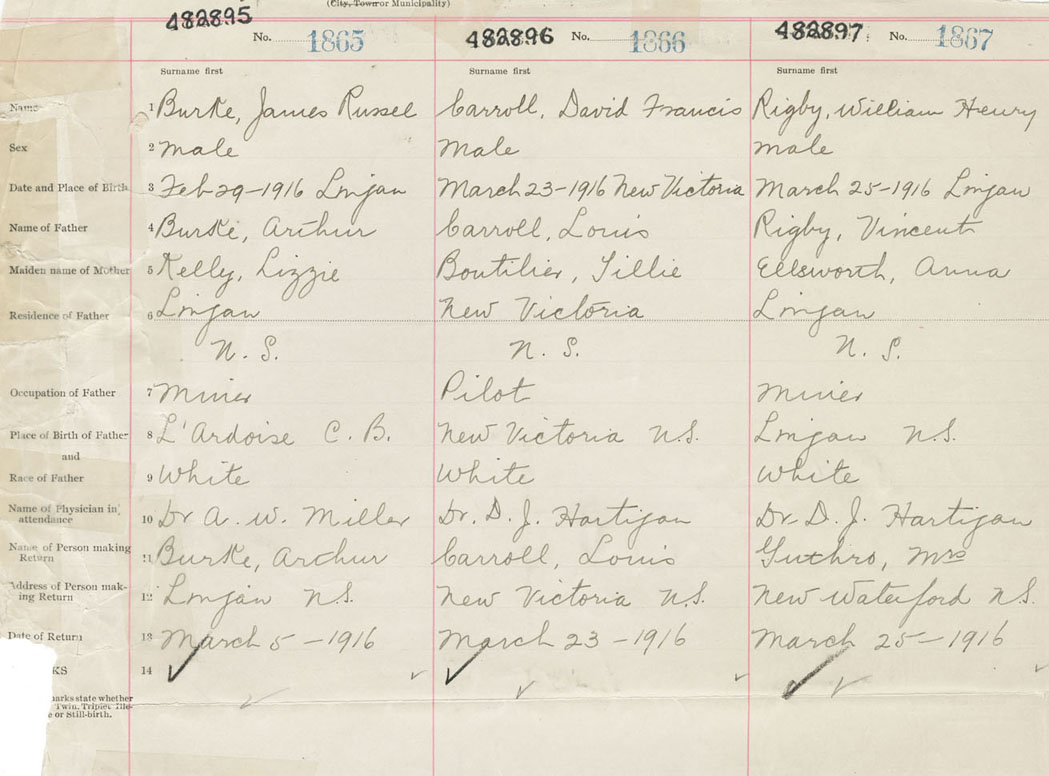 (City, Town or Municipality)
482895 No. 1865 482896 No. 1866 482897 No. 1867
Surname first Surname first Surname first
Name 1 Burke, James Russel Carroll, David Francis Rigby, William Henry
Sex 2 Male Male Male
Date and Place of Birth 3 Feb 29-1916 Lingan March 23-1916 New Victoria March 25-1916 Lingan
Name of Father 4 Burke, Arthur Carroll, Louis Rigby, Vincent
Maiden name of Mother 5 Kelly, Lizzie Boutilier, Tillie Ellsworth, Anna
Residence of Father 6 Lingan New Victoria Lingan
N. S. N. S. N. S.
Occupation of Father 7 Miner Pilot Miner
Place of Birth of Father 8 L'Ardoise C. B. New Victoria N.S. Lingan N.S.
and
Race of Father 9 White White White
Name of Physician in attendance 10 Dr A. W. Miller Dr. D. J. Hartigan Dr. D. J. Hartigan
Name of Person making Return 11 Burke, Arthur Carroll, Louis Guthro, Mrs
Address of Person making Return 12 Lingan N.S. New Victoria N.S. New Waterford N.S.
Date of Return 13 March 5-1916 March 23-1916 March 25-1916
KS 14
marks state whether
Twin, Triplet, Ille-
e or Still-birth.